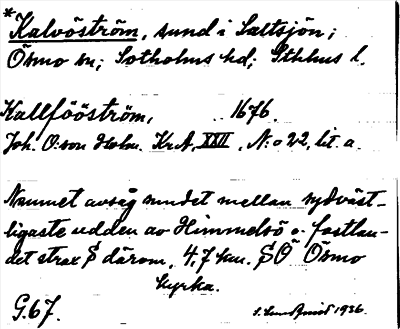 *Kalvöström, sund i Saltsjön;
Ösmo sn; Sotholms hd; Sthlms l.
Kallfööström, 1676.
Joh. O:son Holm. Kr.A, XXII, N:o 22, lit. a.
Namnet avsåg sundet mellan sydväst-
ligaste udden av Himmelsö o. fastlan-
det strax S därom, 4,7 km. SÖ Ösmo
kyrka.
G.67.
1936.